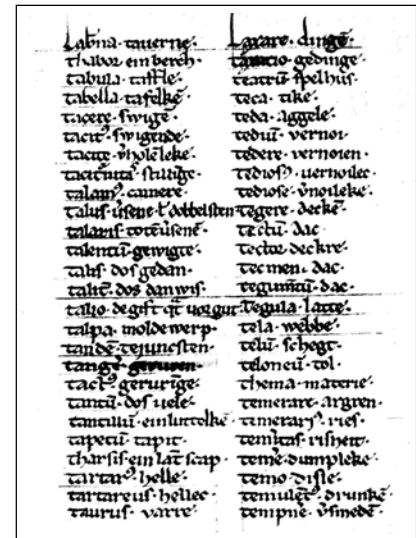 Tabn̄a · tauerne ·
thabor ein berch ·
tabula · taffle ·
tabella · tafelkē ·
tacere · swigē ·
tacitꝰ swigende ·
tacite
tacit̉nitaˢ stillige ·
talamꝰ · camere ·
talus dobbelsten
talaris · tote
talentū · gewigte ·
talis dos gedan ·
talit̉ · dos dan wis ·
talio de gift
talpa · molde werp ·
tande · te juncsten ·
tangē · geruren ·
tactꝰ gerurīge ·
tantū · dos uele ·
tantillū · ein luttelkē ·
tapetū · tapit ·
tharsis · ein lāt scap ·
tartarꝰ · helle ·
tartareus · hellec ·
taurus · varre ·
Taxare · dingē ·
taxatio gedinge ·
teatrū spelhus ·
teca · tike ·
teda · aggele ·
tediū · vernoi ·
tedere · vernoien ·
tediosꝰ · uernoilec ·
tediose · v̉noileke ·
tegere · deckē ·
tectū · dac ·
tector · deckre ·
tecmen · dac ·
tegumtū · dac ·
Tegula · latte ·
tela · webbe ·
telū · schegt ·
teloneū · tol ·
thema · materie ·
temerare · argren ·
timerariꝰ · ries ·
temitas · risheit ·
temē · dumpleke ·
temo · disle ·
temulētꝰ · drunkē ·
tempne · v̉smedē ·